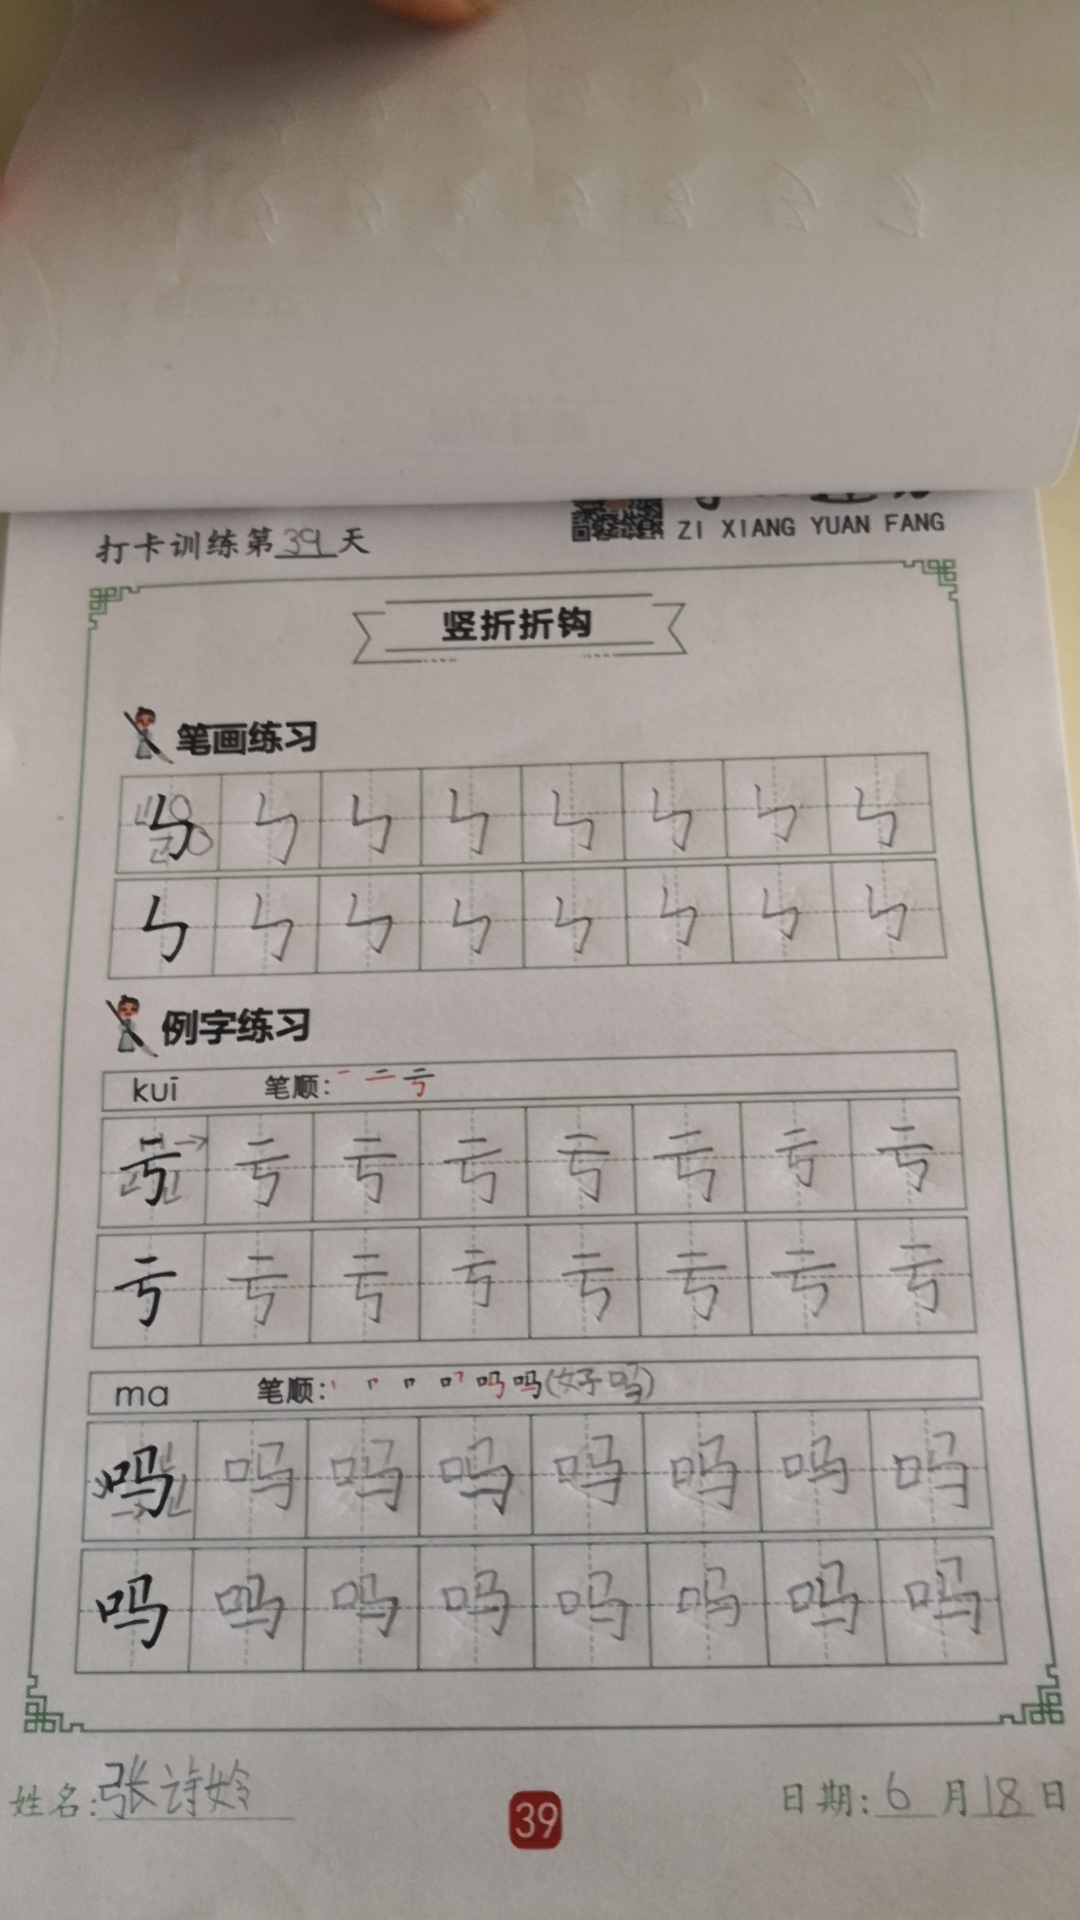 打卡训练第39天
ZI XIANG YUAN FANG
竖折折钩
笔画练习
ㄣ ㄣ ㄣ ㄣ ㄣ ㄣ ㄣ ㄣ
ㄣ ㄣ ㄣ ㄣ ㄣ ㄣ ㄣ ㄣ
例字练习
kuī 笔顺: 一 二 亏
亏 亏 亏 亏 亏 亏 亏 亏
亏 亏 亏 亏 亏 亏 亏 亏
ma 笔顺: 吗 吗 (好吗)
吗 吗 吗 吗 吗 吗 吗 吗
吗 吗 吗 吗 吗 吗 吗 吗
姓名:张诗姈
39
日期:6月18日